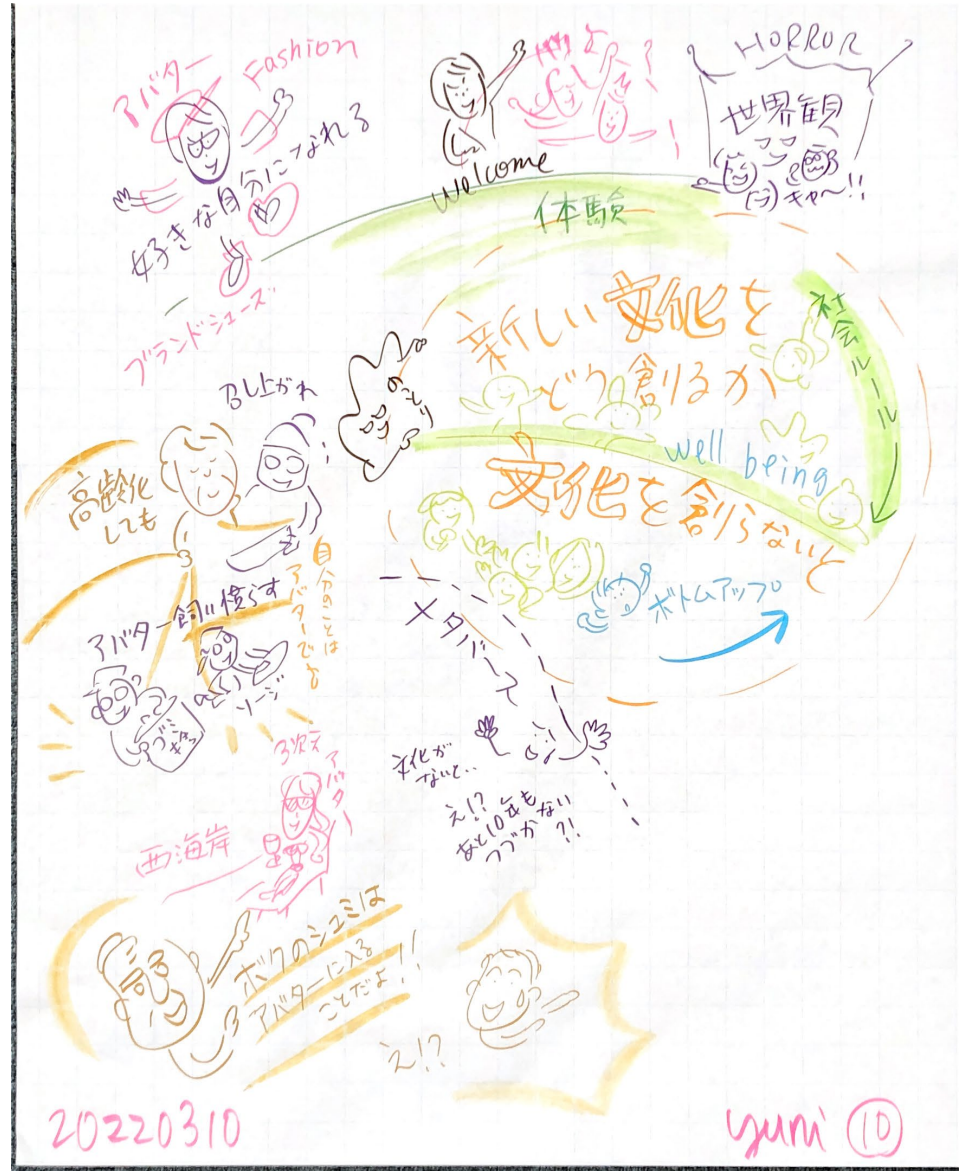 アバター
Fashion
好きな自分になれる
ブランドシューズ
Welcome
HORROR
世界観
キャ〜!!
体験
新しい文化を
どう創るか
社会ルール
のことり
well being
文化を創らないと
ボトムアップ
召し上がれ
高齢化
しても
自分のことは
アバターでよ
アバター飼い慣らす
ソージ
メタバース
文化が
ないと..
え!?
あと10年も
つづかない
?!
3次元
アバター
西海岸
ボクのシュミは
アバターに入る
ことだよ!!
え!?
20220310
yuni ⑩